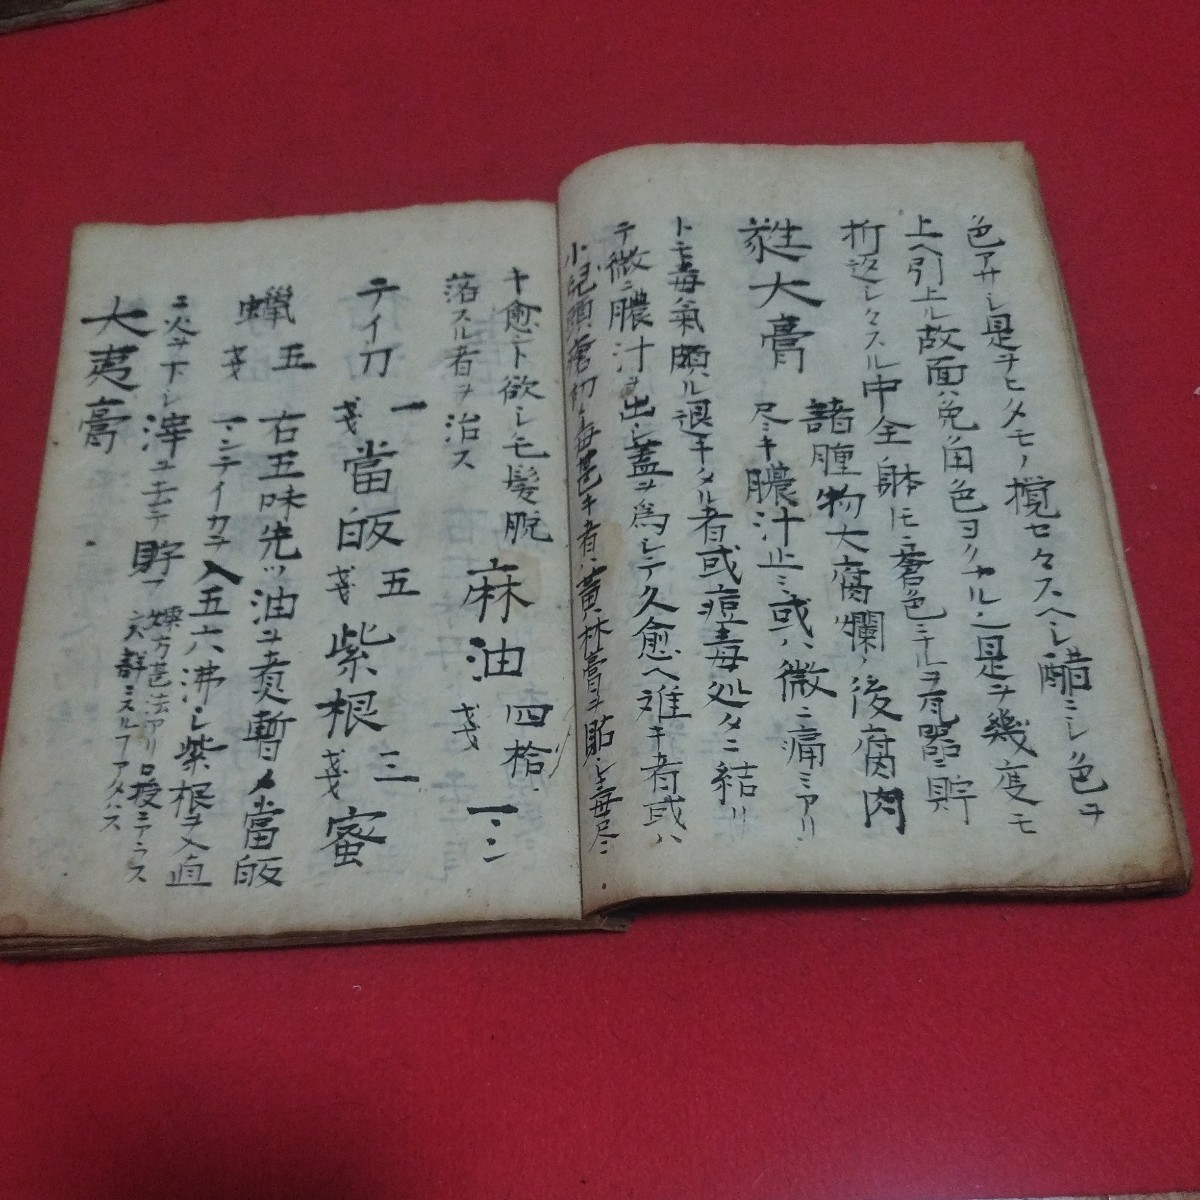 色アサシ是ヲヒタモノ攪セ々スヘシ醋ニシ色ヲ
上ヘ引上ル故面ハ兎角色ヨクナル也是ヲ幾度モ
折返シ々スル中全躰ニ色ニナルヲ瓦器ニ貯
大膏 諸腫物大腐爛ノ後腐肉
尽キ膿汁止ミ或ハ微ニ痛ミアリ
トモ毒氣頗ル退キタル者或痘毒処々ニ結リ
テ微ニ膿汁ヲ出シ蓋ヲ為シテ久愈ヘ難キ者或ハ
小児頭瘡初メ毒甚キ者ハ黄林膏ヲ貼シ毒尽
キ愈ント欲シ毛髪脱
落スル者ヲ治ス
麻油 四拾戔 マンテイカ 一戔
當皈 五戔 紫根 三戔 蜜
蝋 五戔 右五味先ツ油ヲ煮暫メ當皈
マンテイカヲ入五六沸シ紫根ヲ入直
ニ火ヲ下シ滓ヲ去テ貯フ 煉方甚法アリ口授ニアラス
大膏